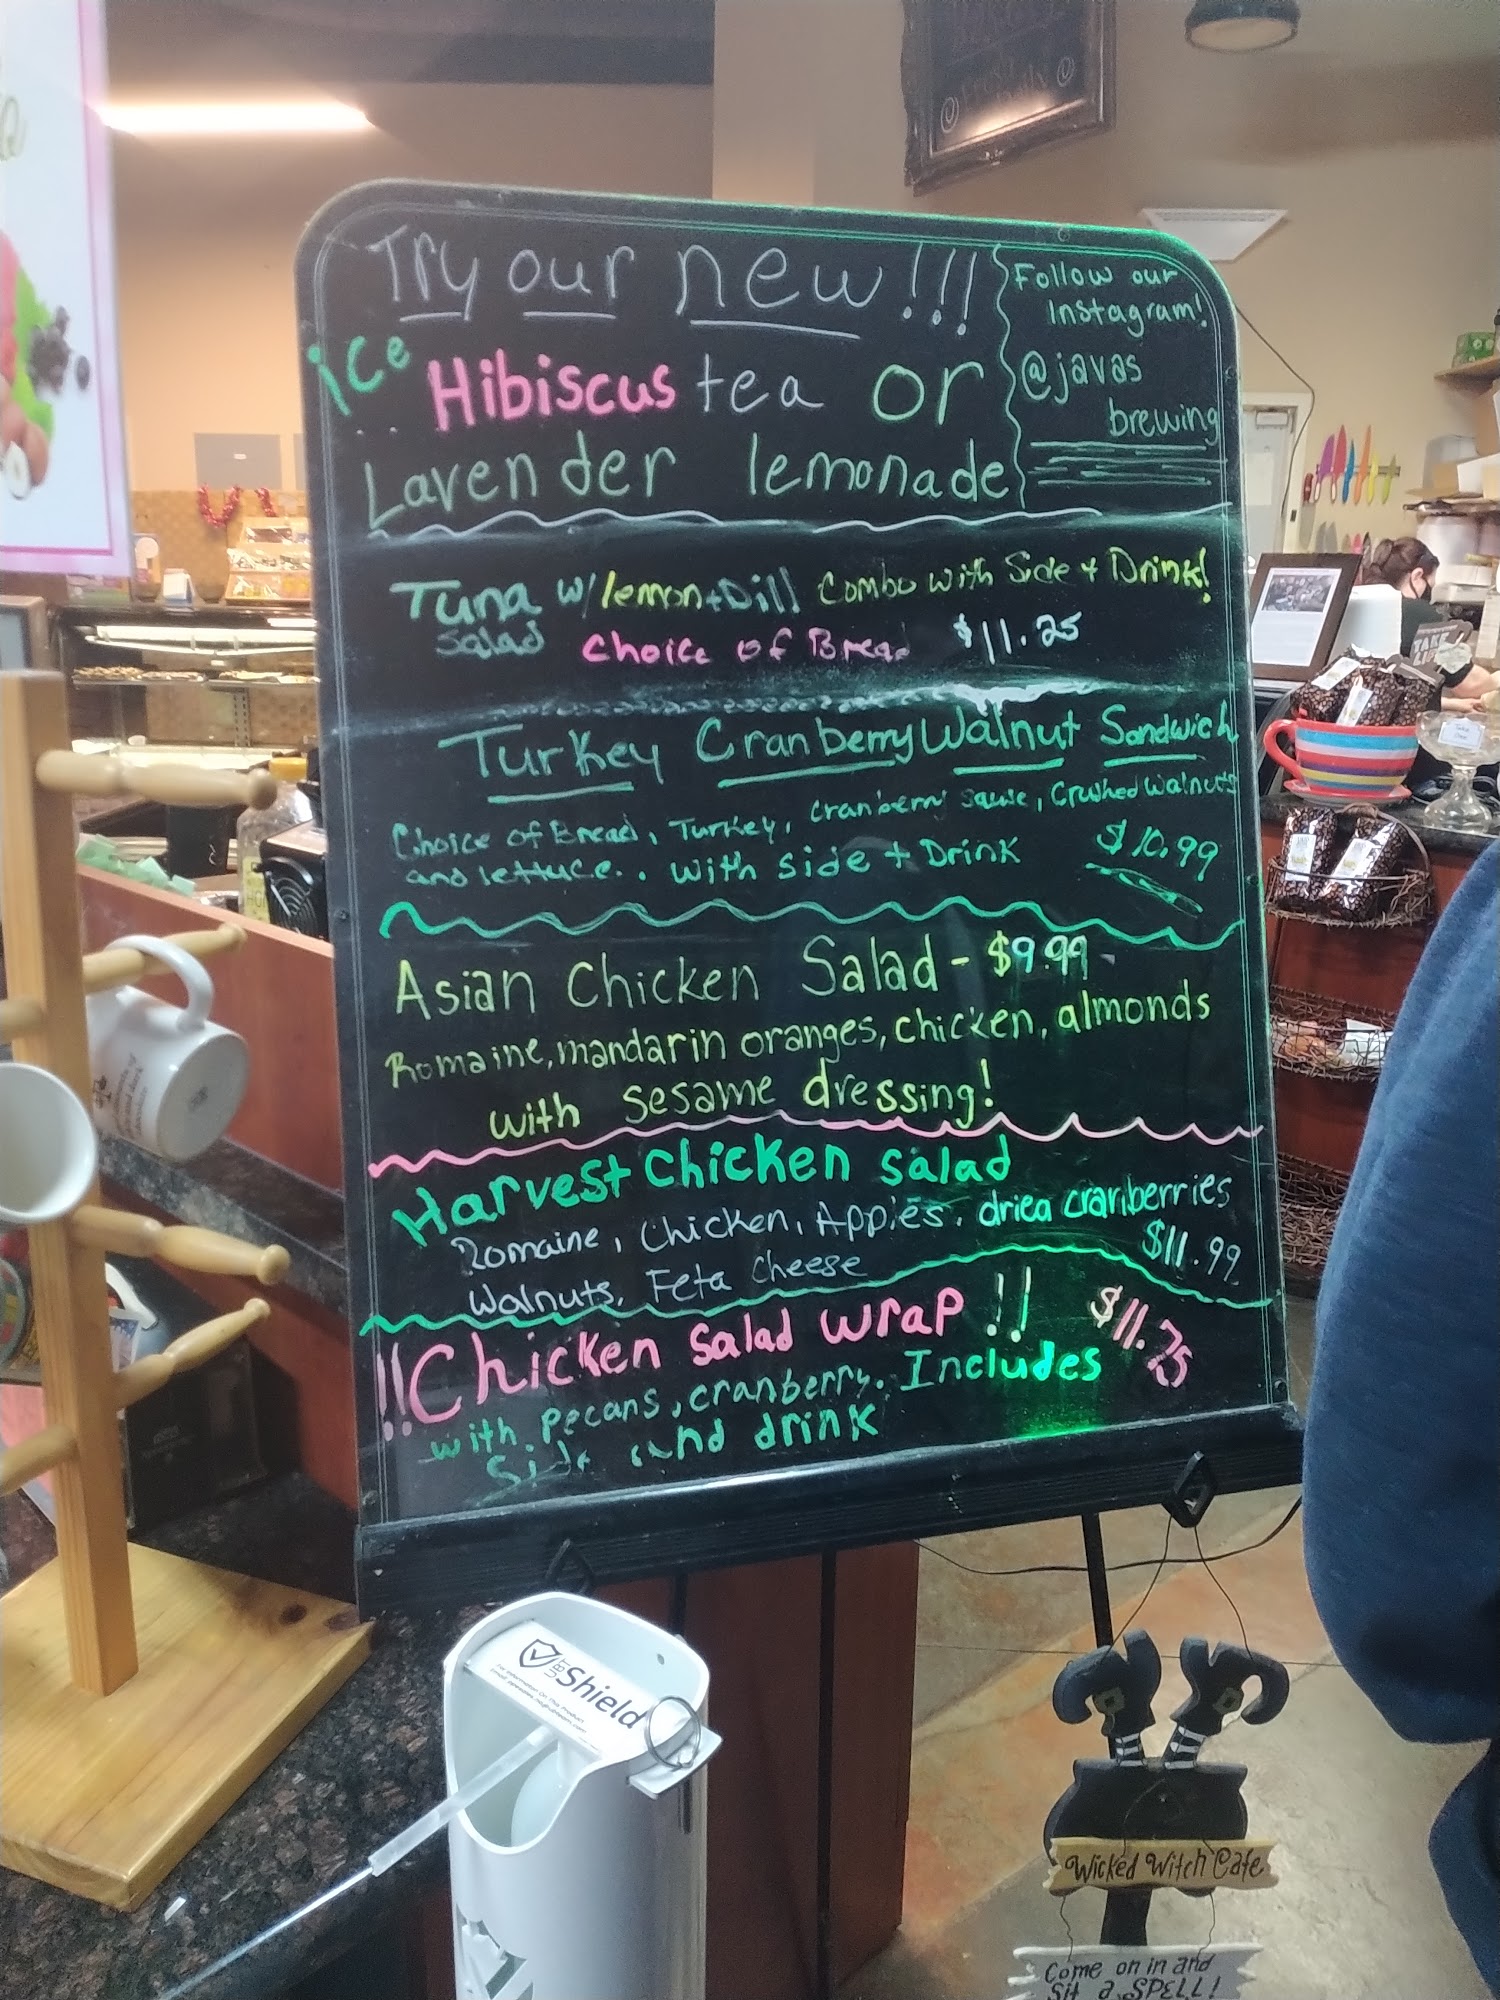 Try our new!!!
ice Hibiscus tea or
Lavender lemonade
Follow our
Instagram!
@javas
brewing
Tuna w/lemon+Dill Combo with Side + Drink!
Salad Choice of Bread $11.25
Turkey Cranberry Walnut Sandwich
Choice of Bread, Turkey, cranberry sause, Crushed Walnuts
and lettuce.. with side + Drink $10.99
Asian Chicken Salad - $9.99
Romaine, mandarin oranges, chicken, almonds
with sesame dressing!
Harvest Chicken salad
Romaine, Chicken, Apples, dried cranberries
Walnuts, Feta Cheese $11.99
!!Chicken salad wrap!! $11.75
with pecans, cranberry. Includes
Side and drink
UBT Shield
Wicked Witch Cafe
Come on in and
Sit a SPELL!